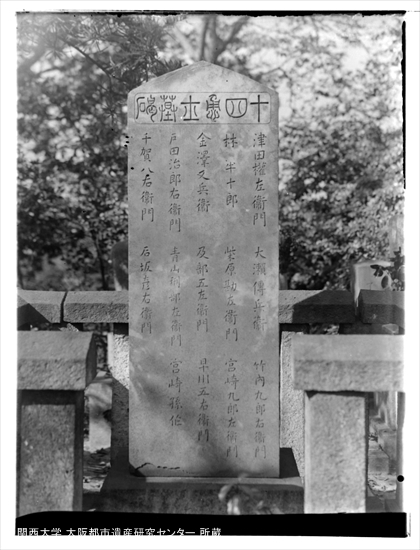 十四勇士墓
津田權左衛門 大瀬傳兵衛 竹内九郎右衛門
林半十郎 柴原勘左衛門 宮崎九郎左衛門
金澤又兵衛 及部五左衛門 早川五右衛門
戸田治郎右衛門 青山郎左衛門 宮崎孫伯
千賀八右衛門 石坂右衛門
関西大学 大阪都市遺産研究センター 所蔵